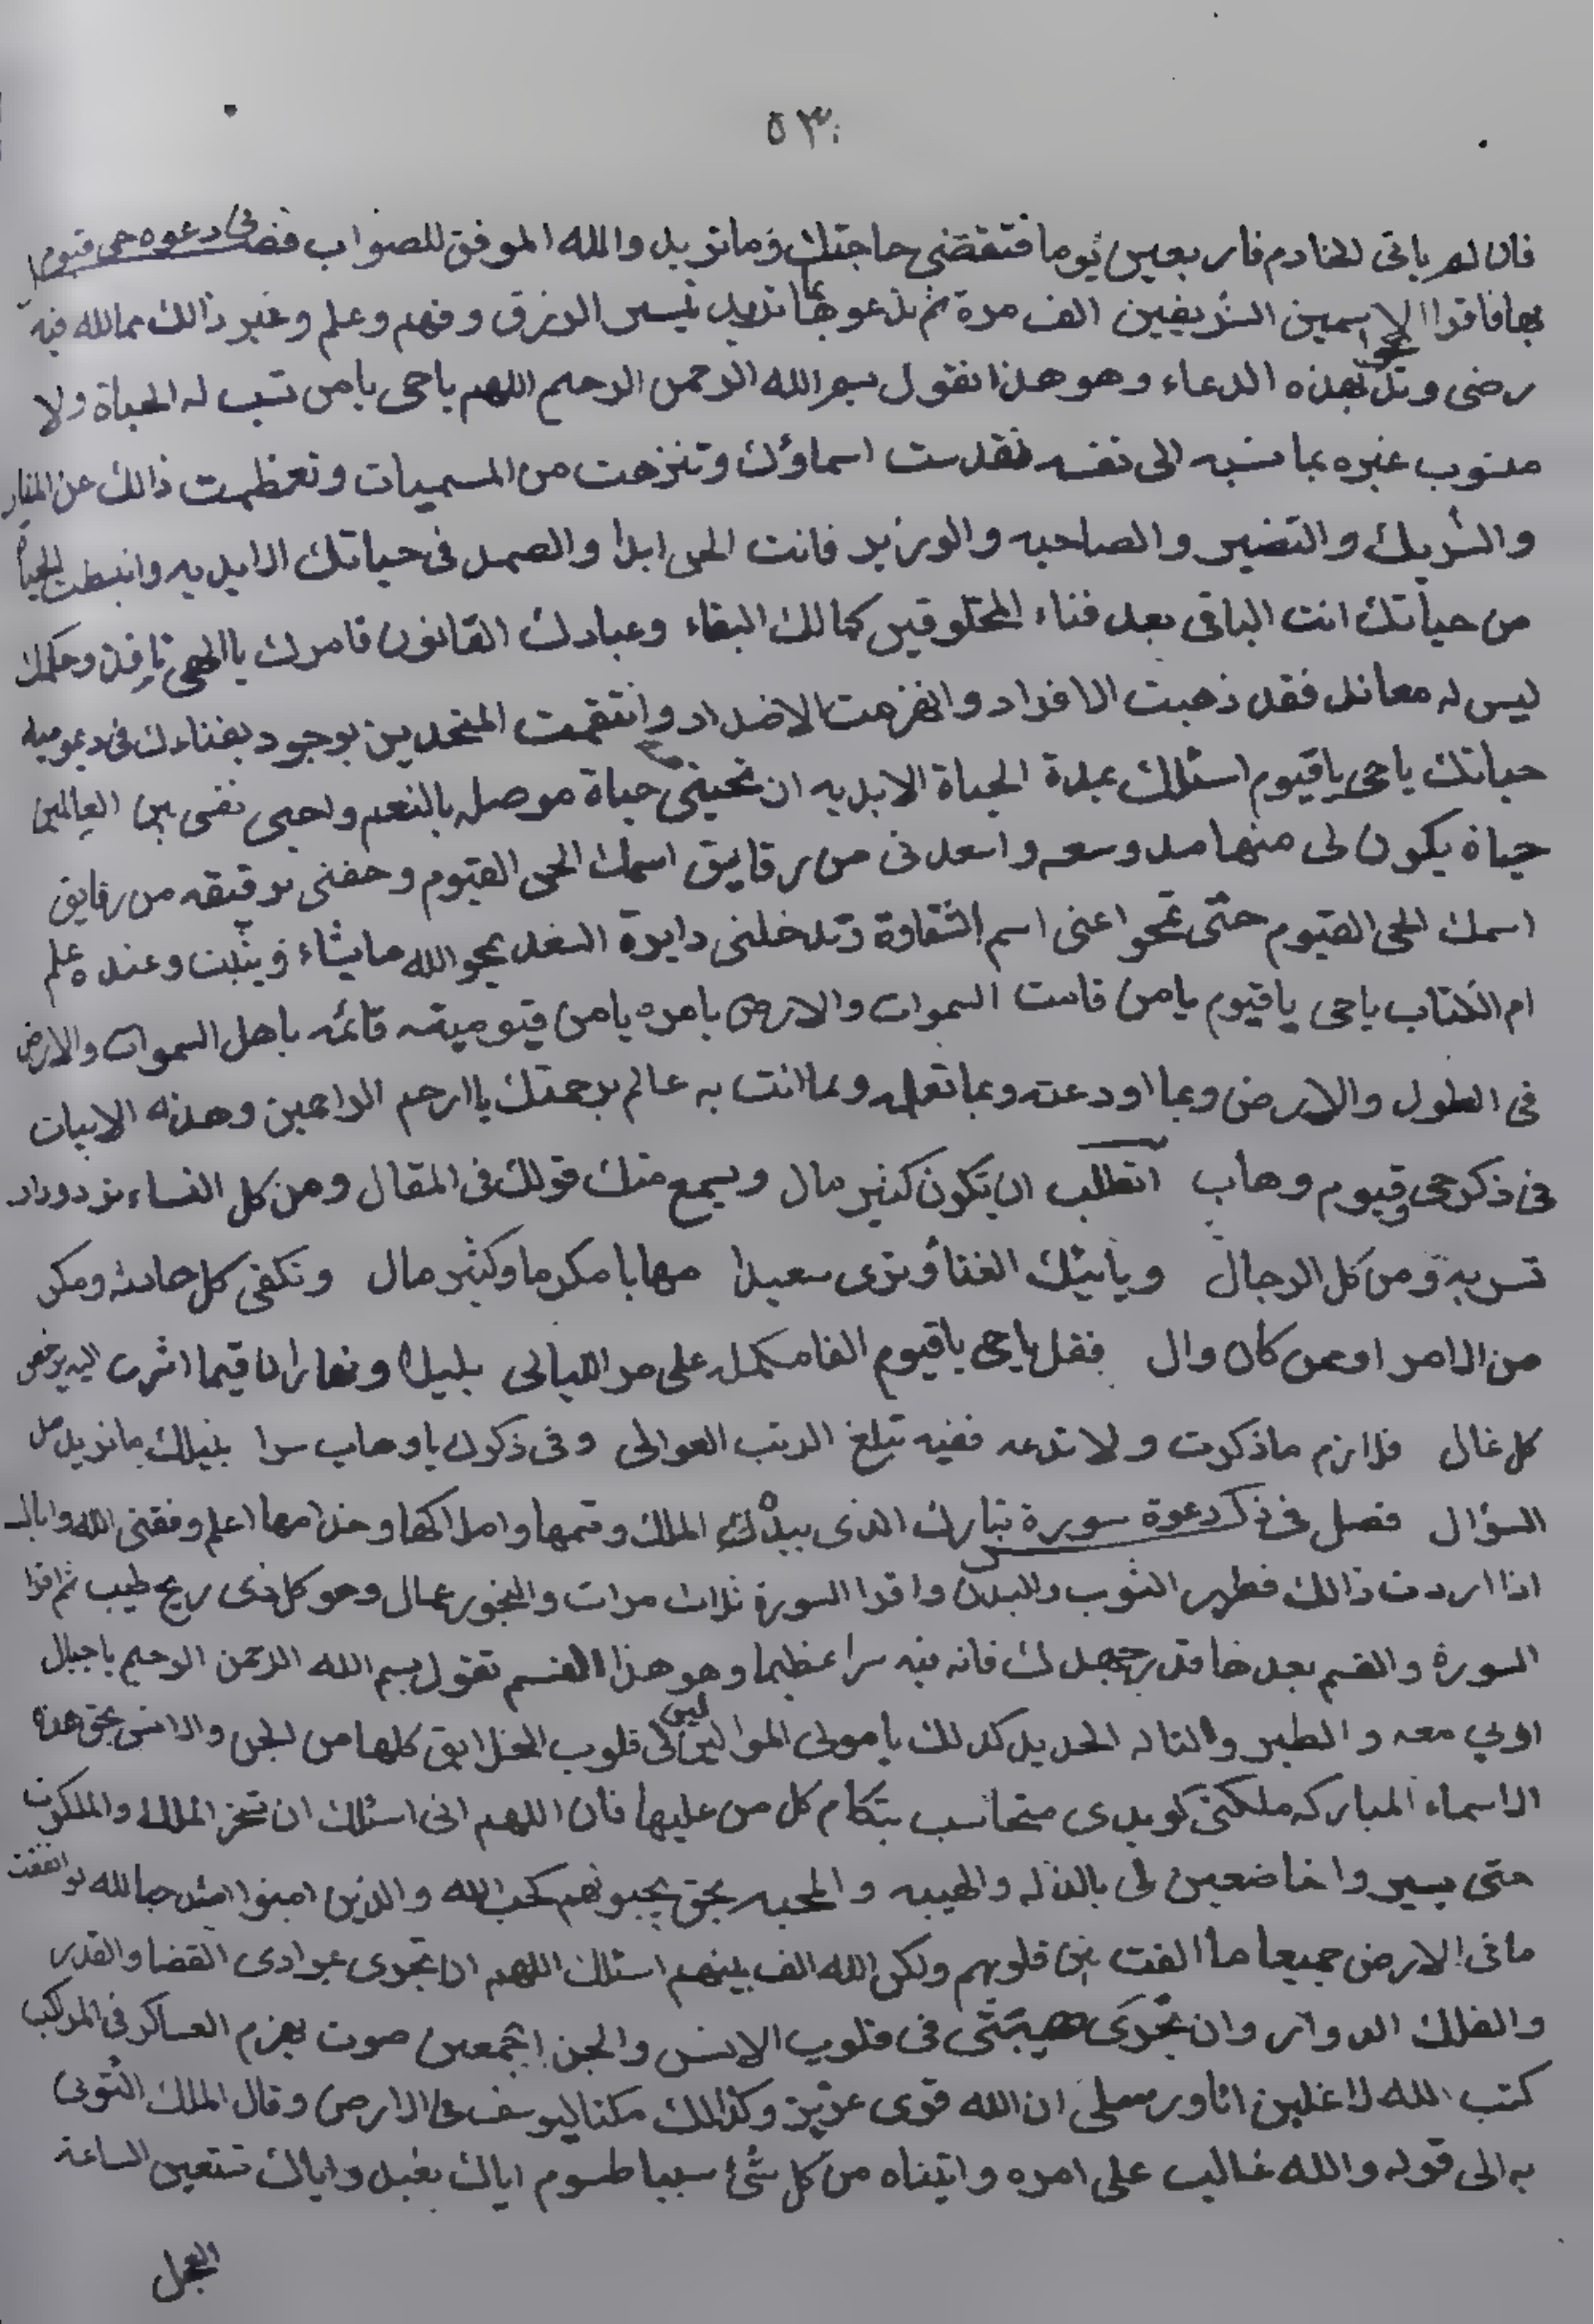 ٥٣
فان لم ياتى الخادم فاربعين يوما فتقضى حاجتك وما تريد والله الموفق للصواب فصل فى دعوه حى قيوم
بها فاقرا الاسمين الشريفين الف مرة ثم تدعو بما تريد تيسير الرزق وفهم وعلم وغير ذالك مما لله فيه
رضى وتدعو بهذه الدعاء وهو هذا تقول بسم الله الرحمن الرحيم اللهم ياحى يامن نسب له الحياة ولا
منسوب غيره بما نسبه الى نفسه تقدست اسماؤك وتنزهت من المسميات وتعظمت ذالك عن
والشريك والنضير والصاحبه والوزير فانت الحى ابدا والصمد فى حياتك الابديه وانبطت الحياة
من حياتك انت الباقى بعد فناء المخلوقين كما لك البقاء وعبادك الفانون فامرك ياالهى نافذ وحكمك
ليس له معاند فقد ذهبت الافراد وانهزمت الاضداد وانتقمت الملحدين بوجود بقناءك فى ديموميه
حياتك ياحى ياقيوم اسئلك بمدة الحياة الابديه ان تحيينى حياة موصله بالنعم واحيى نفسى بين العالمين
حياة يكون لى منها مدد وسعه واسعدنى من رقايق اسمك الحى القيوم وحفنى برقيقه من رقايق
اسمك الحى القيوم حتى تمحوا عنى اسم الشقاوة وتدخلنى دايرة السعد يمحو الله مايشاء ويثبت وعنده علم
ام الكتاب ياحى ياقيوم يامن قامت السموات والارض بامره يامن قيوميته قائمه باهل السموات والارض
فى الطول والارض وبما اودعته وبما تعلمه وبما انت به عالم برحمتك ياارحم الراحمين وهذه الابيات
فى ذكر حى وقيوم وهاب اتطلب ان تكون كثير مال ويسمع منك قولك فى المقال ومن كل النساء ترد وداد
تسر به ومن كل الرجال وياتيك الغنا وترى سعيدا مهابا مكرما وكثير مال وتكفى كل حادثه ومكر
من الامر او ممن كان وال فقل ياحى ياقيوم الفا مكمله على مر الليالى بليلا ونهارا ان فيما اشرت اليه يرخص
كل غال فلازم ماذكرت ولا تدعه ففيه تبلغ الرتب العوالى وفى ذكرك ياوهاب سرا ينيلك ماتريد من
السؤال فصل فى ذكر دعوة سورة تبارك الذى بيده الملك وقسمها واملاكها وخدامها اعلم وفقنى الله واياك
اذا اردت ذالك فطهر الثوب والبدن واقرا السورة ثلاث مرات والبخور عمال وهو كل ذى ريح طيب ثم اقرا
السورة والقسم بعدها قدر جهدك فانه فيه سرا عظيما وهو هذا القسم تقول بسم الله الرحمن الرحيم ياجبال
اوبي معه والطير والنا له الحديد كذلك يامولى الموالى لين لى قلوب الخلايق كلها من الجن والانس بحق هذه
الاسماء المباركه كل من عليها فان اللهم انى اسئلك ان تسخر الملك والملكوت
حتى يسيروا خاضعين لى بالذله والهيبه والمحبه بحق يحبونهم كحب الله والذين امنوا اشد حبا لله لو انفقت
مافى الارض جميعا ما الفت بين قلوبهم ولكن الله الف بينهم اسئلك اللهم ان تجرى عوادى القضا والقدر
والفلك الدوار وان تجرى هيبتى فى قلوب الانس والجن اجمعين صوت يهزم العساكر فى المركب
كتب الله لاغلبن انا ورسلى ان الله قوى عزيز وكذالك مكنا ليوسف فى الارض وقال الملك ائتونى
به الى قوله والله غالب على امره واتيناه من كل شئ سببا طسوم اياك نعبد واياك نستعين الساعة
العجل